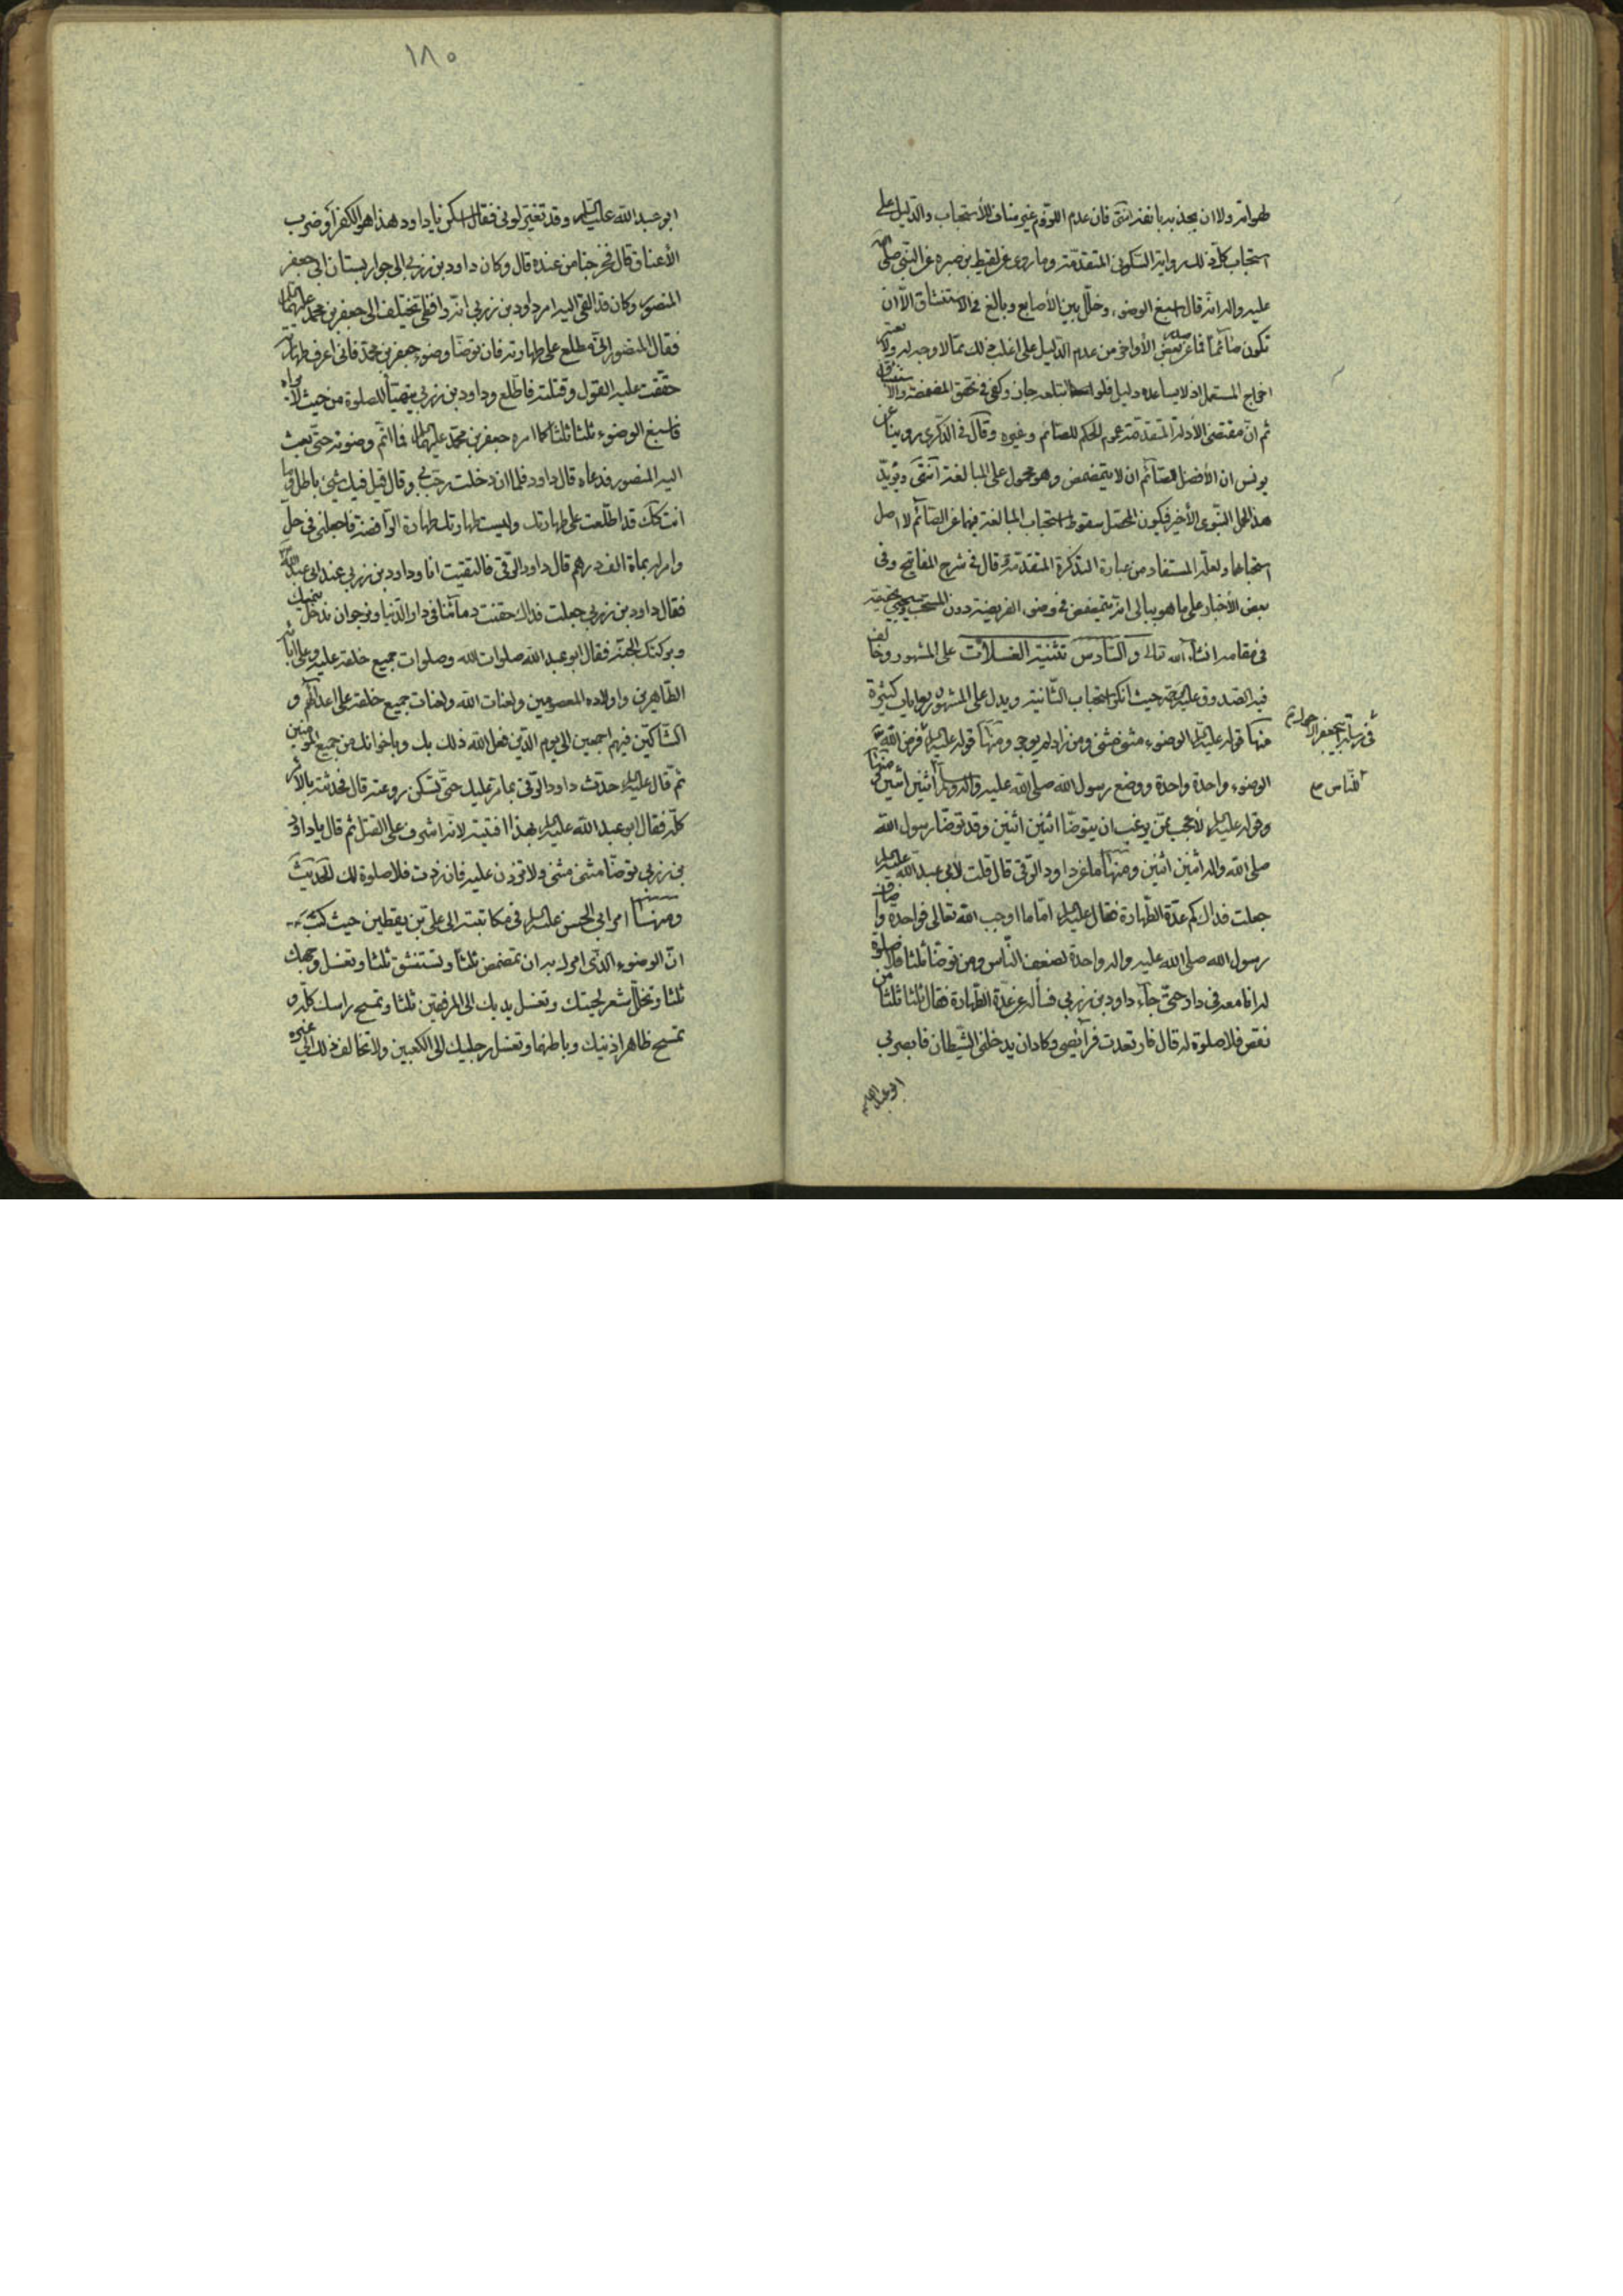 لهواته ولا ان يجذبه بانفه انتهى فان عدم اللزوم غير مناف للأستحباب والدليل على
استحباب كل ذلك رواية السكوني المتقدمة وما روى عن لقيط بن صبره عن النبي صلى الله
عليه واله انه قال اسبغ الوضوء وخلل بين الأصابع وبالغ في الاستنشاق الا ان
تكون صائما فما عن بعض الأواخر من عدم الدليل على اغلب ذلك مما لا وجه له ولا يعتبر
اخراج المستعمل اذ لا يساعده دليل فلو ابتلعه جاز وكفى في تحقق المضمضة والاستنشاق
ثم ان مقتضى الأدلة المتقدمة عموم الحكم للصائم وغيره وقال في الذكرى روينا عن
يونس ان الأفضل للصائم ان لا يتمضمض وهو محمول على المبالغة انتهى ويؤيد
هذا الحمل النبوي الأخير فيكون المحصل سقوط استحباب المبالغة فيهما عن الصائم لا اصل
استحبابهما ولعله المستفاد من عبارة التذكرة المتقدمة وقال في شرح المفاتيح وفى
بعض الأخبار على ما هو ببالى انه يتمضمض في وضوء الفريضة دون المستحب وسيجيئ تحقيقه
في مقامه انشاء الله تعالى والسادس تثنية الغسلات على المشهور وخالف
فيه الصدوق عليه الرحمة حيث انكر استحباب الثانية ويدل على المشهور روايات كثيرة
منها قوله عليه السلام الوضوء مثنى مثنى ومن زاد لم يوجر ومنها قوله عليه السلام فرض الله في
الوضوء واحدة واحدة ووضع رسول الله صلى الله عليه واله وسلم اثنين اثنين منها
وقوله عليه السلام لأعجب ممن يرغب ان يتوضا اثنين اثنين وقد توضا رسول الله
صلى الله واله اثنين اثنين ومنها ما عن داود الرقى قال قلت لأبي عبد الله عليه السلام
جعلت فداك كم عدة الطهارة فقال عليه السلام اما ما اوجب الله تعالى فواحدة واضاف
رسول الله صلى الله عليه واله واحدة لضعف الناس ومن توضا ثلثا فلا صلوة
له انا معه في ذا حتى جاء داود بن زربى فسأله عن عدة الطهارة فقال ثلثا ثلثا من
نقص فلا صلوة له قال فارتعدت فرائصى وكاد ان يدخلنى الشيطان فابصر بى
ابو عبد الله
للناس
١٨٠
ابو عبد الله عليه السلام وقد تغير لونى فقال اسكن يا داود هذا هو الكفر او ضرب
الأعناق قال فخرجنا من عنده قال وكان داود بن زربى الى جوار بستان ابى جعفر
المنصور وكان قد القى اليه امر داود بن زربى انه رافضى يختلف الى جعفر بن محمد عليهما السلام
فقال المنصور انى مطلع على طهارته فان توضا وضوء جعفر بن محمد فانى اعرف طهارته
حققت عليه القول وقتلته فاطلع وداود بن زربى يتهيأ للصلوة من حيث لا يراه
فاسبغ الوضوء ثلثا ثلثا كما امره جعفر بن محمد عليهما السلام فما اتم وضوئه حتى بعث
اليه المنصور فدعاه قال داود فلما ان دخلت رحب بى وقال قيل فيك شئ باطل وما
انت كك قد اطلعت على طهارتك وليست طهارتك طهارة الرافضة فاجعلنى في حل
وامر له بمأة الف درهم قال داود الرقى فالتقيت انا وداود بن زربى عند ابى عبد الله
فقال داود بن زربى جعلت فداك حقنت دمائنا في دار الدنيا ونرجو ان ندخل بحبك
وبركتك الجنة فقال ابو عبد الله صلوات الله وصلوات جميع خلقه عليه وعلى ابائه
الطاهرين واولاده المعصومين ولعنات الله ولعنات جميع خلقه على اعدائهم و
الشاكين فيهم اجمعين الى يوم الدين فعل الله ذلك بك وباخوانك من جميع المؤمنين
ثم قال عليه السلام حدث داود الرقى بما مر عليك حتى تسكن روعته قال فحدثته بالامر
كله فقال ابو عبد الله عليه السلام بهذا افتيته لانه اشرف على القتل ثم قال يا داود
بن زربى توضا مثنى مثنى ولا تزدن عليه فان زدت فلا صلوة لك الحديث
ومنها امر ابى الحسن عليه السلام في مكاتبته الى على بن يقطين حيث كتب
ان الوضوء الذى امر له به ان تمضمض ثلثا وتستنشق ثلثا وتغسل وجهك
ثلثا وتخلل شعر لحيتك وتغسل يديك الى المرفقين ثلثا وتمسح راسك كله و
تمسح ظاهر اذنيك وباطنهما وتغسل رجليك الى الكعبين ولا تخالف ذلك الى غيره